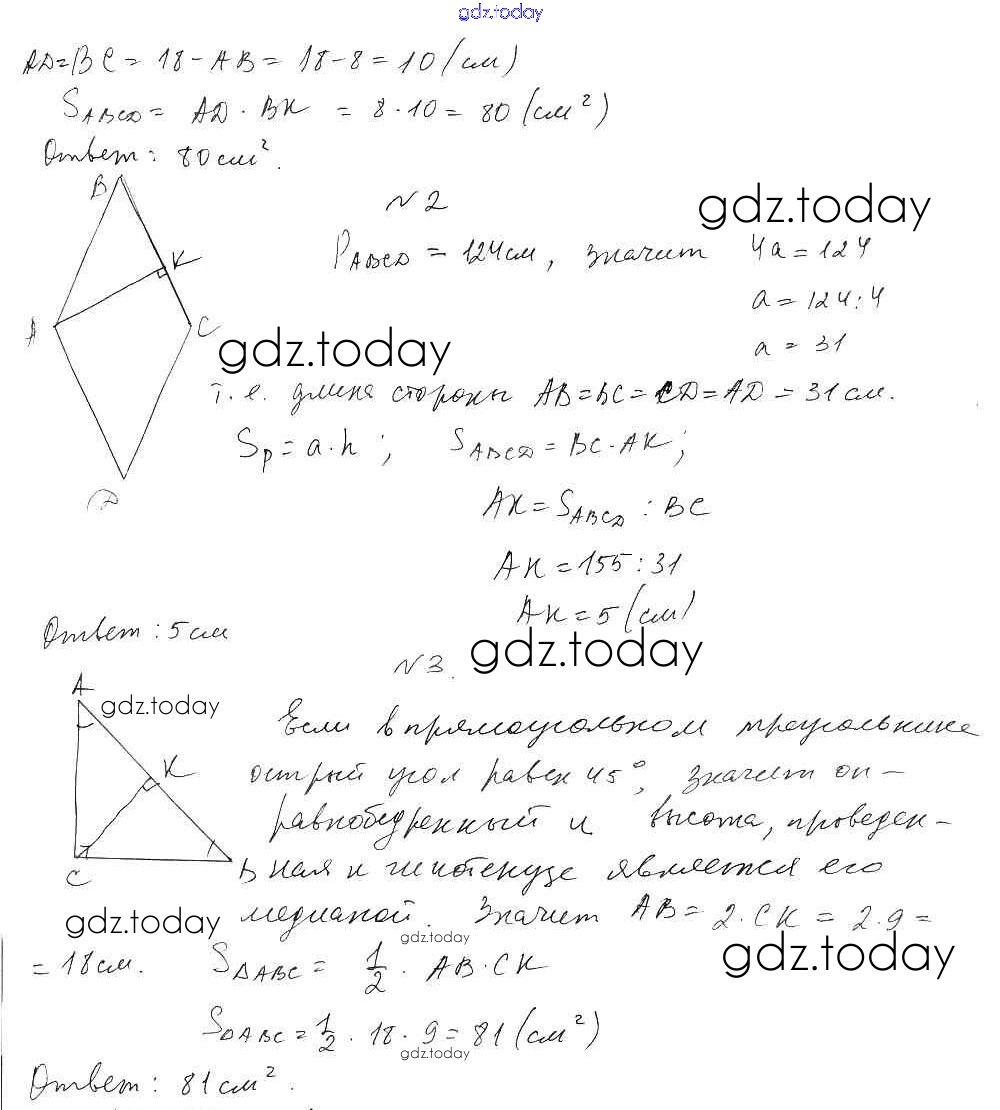 gdz.today
AD=BC = 18-AB = 18-8 = 10 (см)
S_ABCD = AD · BK = 8 · 10 = 80 (см²)
Ответ: 80 см².
B
N2
gdz.today
P_ABCD = 124 см, значит 4a = 124
K
a = 124:4
A
C
gdz.today
a = 31
т. е. длина стороны AB=BC=CD=AD=31 см.
Sр = a·h; S_ABCD = BC·AK;
D
AK = S_ABCD : BC
AK = 155 : 31
AK = 5 (см)
Ответ: 5 см
N3.
gdz.today
A
gdz.today
Если в прямоугольном треугольнике
K
острый угол равен 45°, значит он-
равнобедренный и высота, проведен-
C
B ная к гипотенузе является его
gdz.today
медианой. Значит AB = 2·CK = 2·9 =
gdz.today
gdz.today
= 18 см. S_ΔABC = 1/2 · AB·CK
S_ΔABC = 1/2 · 18 · 9 = 81 (см²)
gdz.today
Ответ: 81 см².